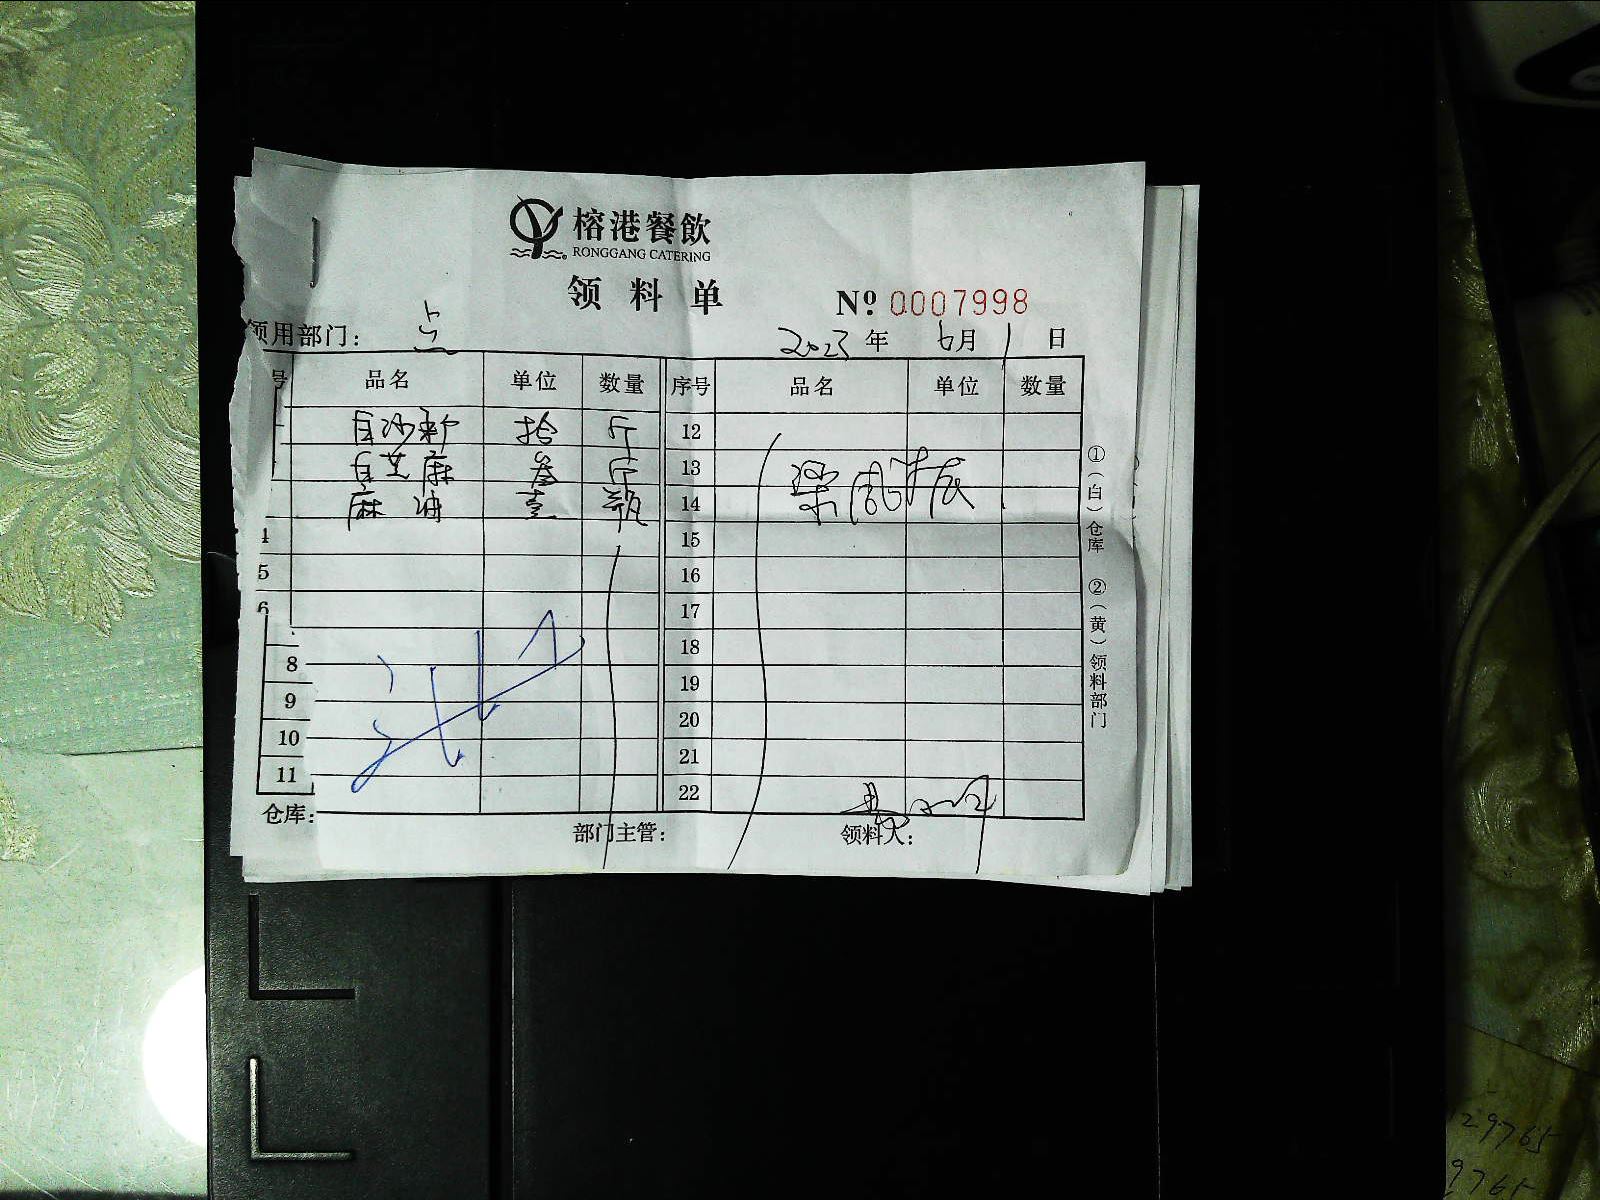 榕港餐飲
RONGGANG CATERING
领料单
Nº 0007998
领用部门: 点
2023年 6月 1日
号 品名 单位 数量 序号 品名 单位 数量
白沙 拾 斤 12
白芝麻 叁 斤 13
麻油 壹 瓶 14
4 15
5 16
6 17
8 18
9 19
10 20
11 21
22
仓库: 部门主管: 领料人:
①(白)仓库 ②(黄)领料部门
29765
9765